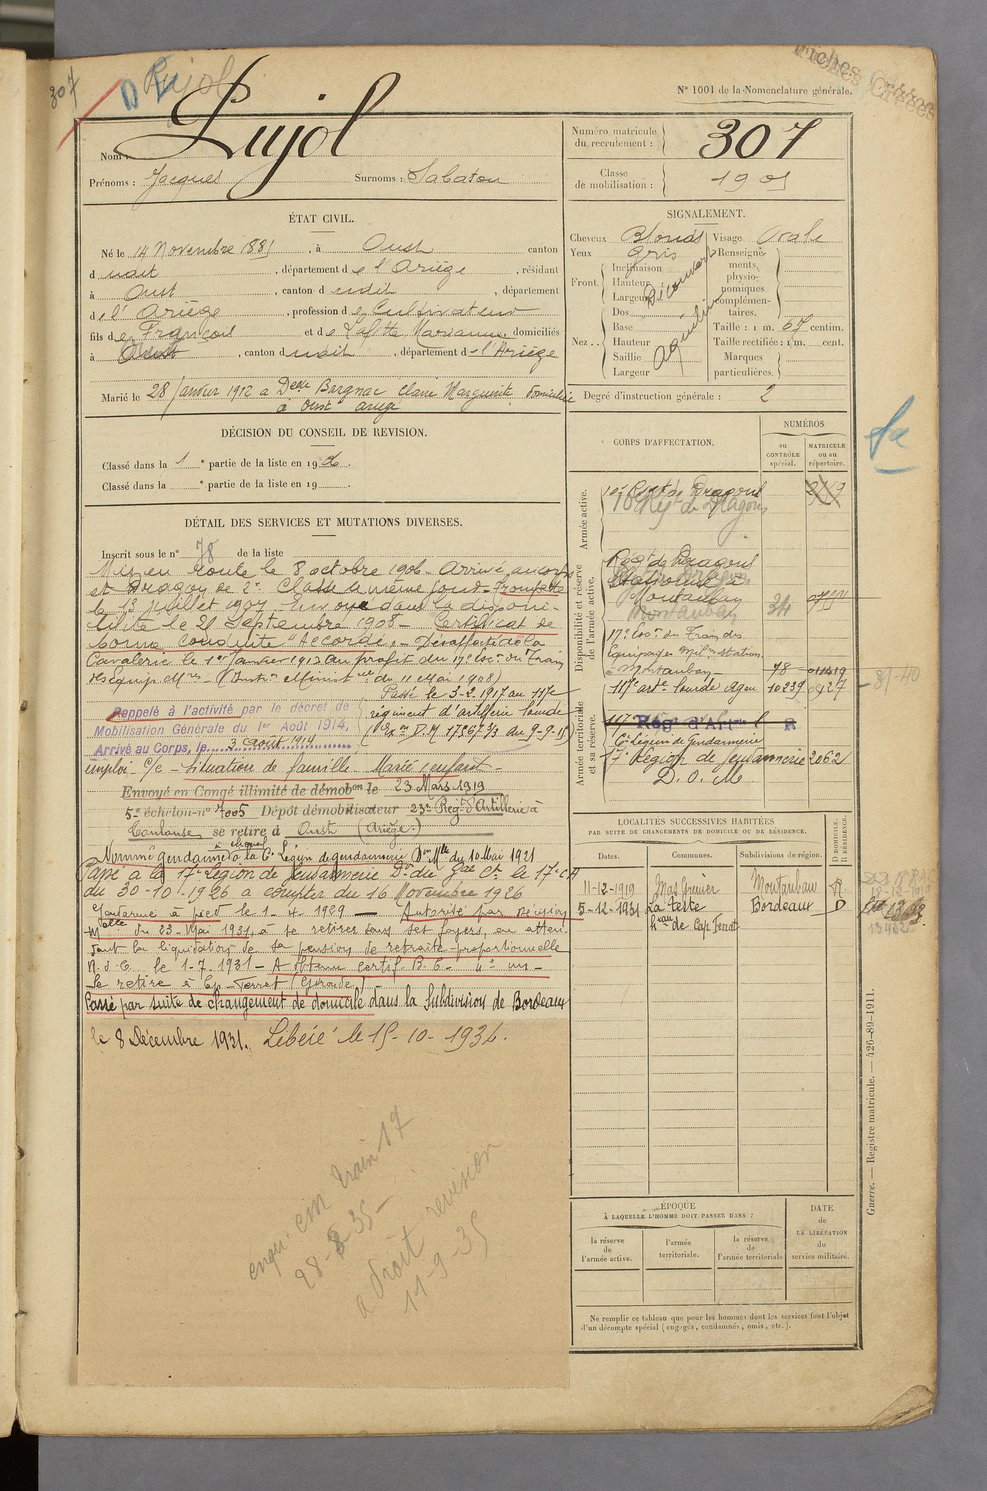 307
Pujol
Fiches
N° 1001 de la Nomenclature générale.
Nom : Pujol
Prénoms : Jacques Surnoms : Sabatou
Numéro matricule du recrutement : 307
Classe de mobilisation : 1901
ÉTAT CIVIL.
Né le 14 Novembre 1881, à Oust canton
d udit, département de l'Ariège, résidant
à Oust, canton d udit, département
de l'Ariège, profession de Cultivateur
fils de François et de Lafitte Marianne, domiciliés
à Oust, canton d udit, département de l'Ariège
Marié le 28 Janvier 1912 a Delle Bargnac Claire Marguerite domiciliée
à Oust ariège
DÉCISION DU CONSEIL DE REVISION.
Classé dans la 1e partie de la liste en 190
Classé dans la e partie de la liste en 19
DÉTAIL DES SERVICES ET MUTATIONS DIVERSES.
Inscrit sous le n° 78 de la liste
Mis en route le 8 octobre 1906. Arrivé au corps
et Dragon de 2e Classe le même jour. Trompette
le 13 juillet 1907. Envoyé dans la disponi-
bilité le 21 Septembre 1908. Certificat de
bonne conduite "Accordé". Désaffecté de la
Cavalerie le 1er Janvier 1912 au profit du 17e Esc. du Train
des Equip. Mres (Instr. Ministlle du 11 Mai 1908)
Passé le 3-2-1917 au 117e
régiment d'artillerie lourde
Rappelé à l'activité par le décret de
Mobilisation Générale du 1er Août 1914,
Arrivé au Corps, le 3 août 1914
D.M. 17567 2/3 du 9-9-15)
emploi c/c - Situation de famille Marié 1 enfant -
Envoyé en Congé illimité de démobon le 23 Mars 1919
5e échelon-n° 7005 Dépôt démobilisateur 23e Régt d'Artillerie à
Toulouse se retire à Oust (Ariège.)
à cheval
Nommé gendarme à la Cie Légion de gendarmerie Don Mlle du 10 Mai 1921
Passé à la 17e Légion de Gendarmerie Don du Gal Ct le 17e CA
du 30-10-1926 a compter du 16 Novembre 1926
Gendarme à pied le 1-4-1929 — Autorisé par décision
Mielle du 23-Mai 1931, à se retirer dans ses foyers, en atten-
dant la liquidation de sa pension de retraite proportionnelle
R. d. C. le 1-7-1931 - A obtenu certif. B. C.
Se retire à Cap-Ferret (Gironde)
Passé par suite de changement de domicile dans la Subdivision de Bordeaux
le 8 Décembre 1931. Libéré le 15-10-1934.
train 17
28-8-35-
a droit revision
11-9-35
SIGNALEMENT.
Cheveux Blonds Visage Ovale
Yeux Gris
Front. Inclinaison Hauteur Largeur Découvert
Nez .. Dos Base Hauteur Saillie Largeur Aquilin
Renseignements physionomiques complémentaires.
Taille : 1 m. 67 centim.
Taille rectifiée : 1 m. cent.
Marques particulières.
Degré d'instruction générale : 2
CORPS D'AFFECTATION.
NUMÉROS
au CONTRÔLE spécial.
MATRICULE ou au répertoire.
Armée active.
10e Régt de Dragons
Disponibilité et réserve de l'armée active.
Régt de Dragons
Montauban
34
17e Esc. du Train des
Equipages Milres Station.
Montauban 78
117e Arte Lourde Agen 10239 0427
37-40
Armée territoriale et sa réserve.
Régt d'Artie R
Cie Légion de Gendarmerie
17e Région de Gendarmerie 2062
D. O. M.
LOCALITÉS SUCCESSIVES HABITÉES
PAR SUITE DE CHANGEMENTS DE DOMICILE OU DE RÉSIDENCE.
Dates. Communes. Subdivisions de région. D DOMICILE. R RÉSIDENCE.
11-12-1919 Mas Grenier Montauban R
5-12-1931 La Teste Bordeaux D
de Cap Ferret
ÉPOQUE
À LAQUELLE L'HOMME DOIT PASSER DANS :
la réserve de l'armée active.
l'armée territoriale.
la réserve de l'armée territoriale
DATE de LA LIBÉRATION du service militaire.
Ne remplir ce tableau que pour les hommes dont les services font l'objet
d'un décompte spécial (engagés, condamnés, omis, etc.).
Guerre. — Registre matricule. — 426-89-1911.